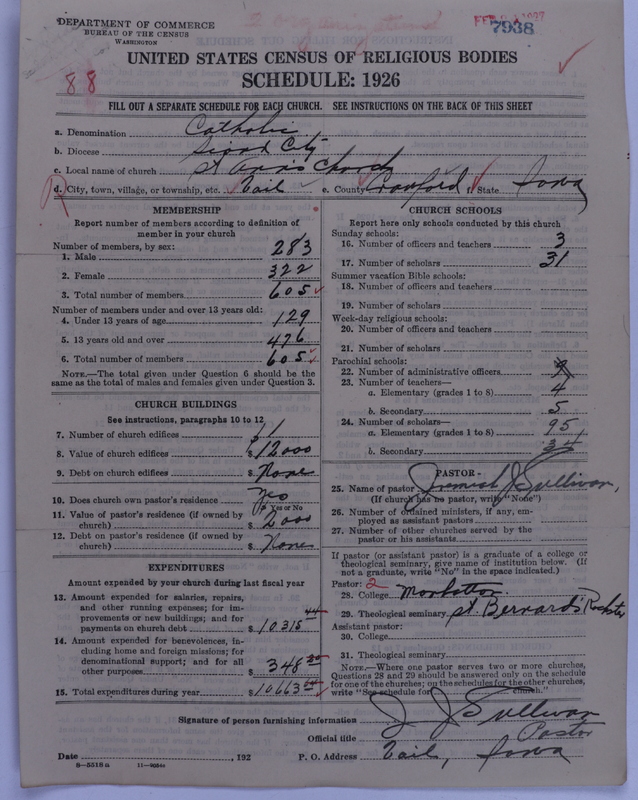 DEPARTMENT OF COMMERCE
BUREAU OF THE CENSUS
WASHINGTON
7938
UNITED STATES CENSUS OF RELIGIOUS BODIES
SCHEDULE: 1926
88
FILL OUT A SEPARATE SCHEDULE FOR EACH CHURCH. SEE INSTRUCTIONS ON THE BACK OF THIS SHEET
a. Denomination Catholic
b. Diocese Sioux City
c. Local name of church St Ann's Church
d. City, town, village, or township, etc. Vail e. County Crawford f. State Iowa
MEMBERSHIP
Report number of members according to definition of
member in your church
Number of members, by sex:
1. Male 283
2. Female 322
3. Total number of members 605
Number of members under and over 13 years old:
4. Under 13 years of age 129
5. 13 years old and over 476
6. Total number of members 605
NOTE.—The total given under Question 6 should be
same as the total of males and females given under Question 3.
CHURCH BUILDINGS
See instructions, paragraphs 10 to 12
7. Number of church edifices 1
8. Value of church edifices $ 12000
9. Debt on church edifices $ None
10. Does church own pastor's residence Yes
Yes or No
11. Value of pastor's residence (if owned by
church) $ 2000
12. Debt on pastor's residence (if owned by
church) $ None
EXPENDITURES
Amount expended by your church during last fiscal year
13. Amount expended for salaries, repairs,
and other running expenses; for im-
provements or new buildings; and for
payments on church debt $ 10315 44
14. Amount expended for benevolences, in-
cluding home and foreign missions; for
denominational support; and for all
other purposes $ 348
15. Total expenditures during year $ 10663
CHURCH SCHOOLS
Report here only schools conducted by this church
Sunday schools:
16. Number of officers and teachers 3
17. Number of scholars 31
Summer vacation Bible schools:
18. Number of officers and teachers
19. Number of scholars
Week-day religious schools:
20. Number of officers and teachers
21. Number of scholars
Parochial schools:
22. Number of administrative officers
23. Number of teachers—
a. Elementary (grades 1 to 8) 4
b. Secondary 5
24. Number of scholars—
a. Elementary (grades 1 to 8) 95
b. Secondary 34
PASTOR
25. Name of pastor Jeremiah J Sullivan,
(If church has no pastor, write "None")
26. Number of ordained ministers, if any, em-
ployed as assistant pastors
27. Number of other churches served by the
pastor or his assistants
If pastor (or assistant pastor) is a graduate of a college or
theological seminary, give name of institution below. (If
not a graduate, write "No" in the space indicated.)
Pastor: 2
28. College Manhattan
29. Theological seminary St. Bernard's Rochester
Assistant pastor:
30. College
31. Theological seminary
NOTE.—Where one pastor serves two or more churches,
Questions 28 and 29 should be answered only on the schedule
for one of the churches; on the schedules for the other churches,
write "See schedule for church."
Signature of person furnishing information J J Sullivan
Official title Pastor
Date , 192 P. O. Address Vail, Iowa
8—5518a 11—9054